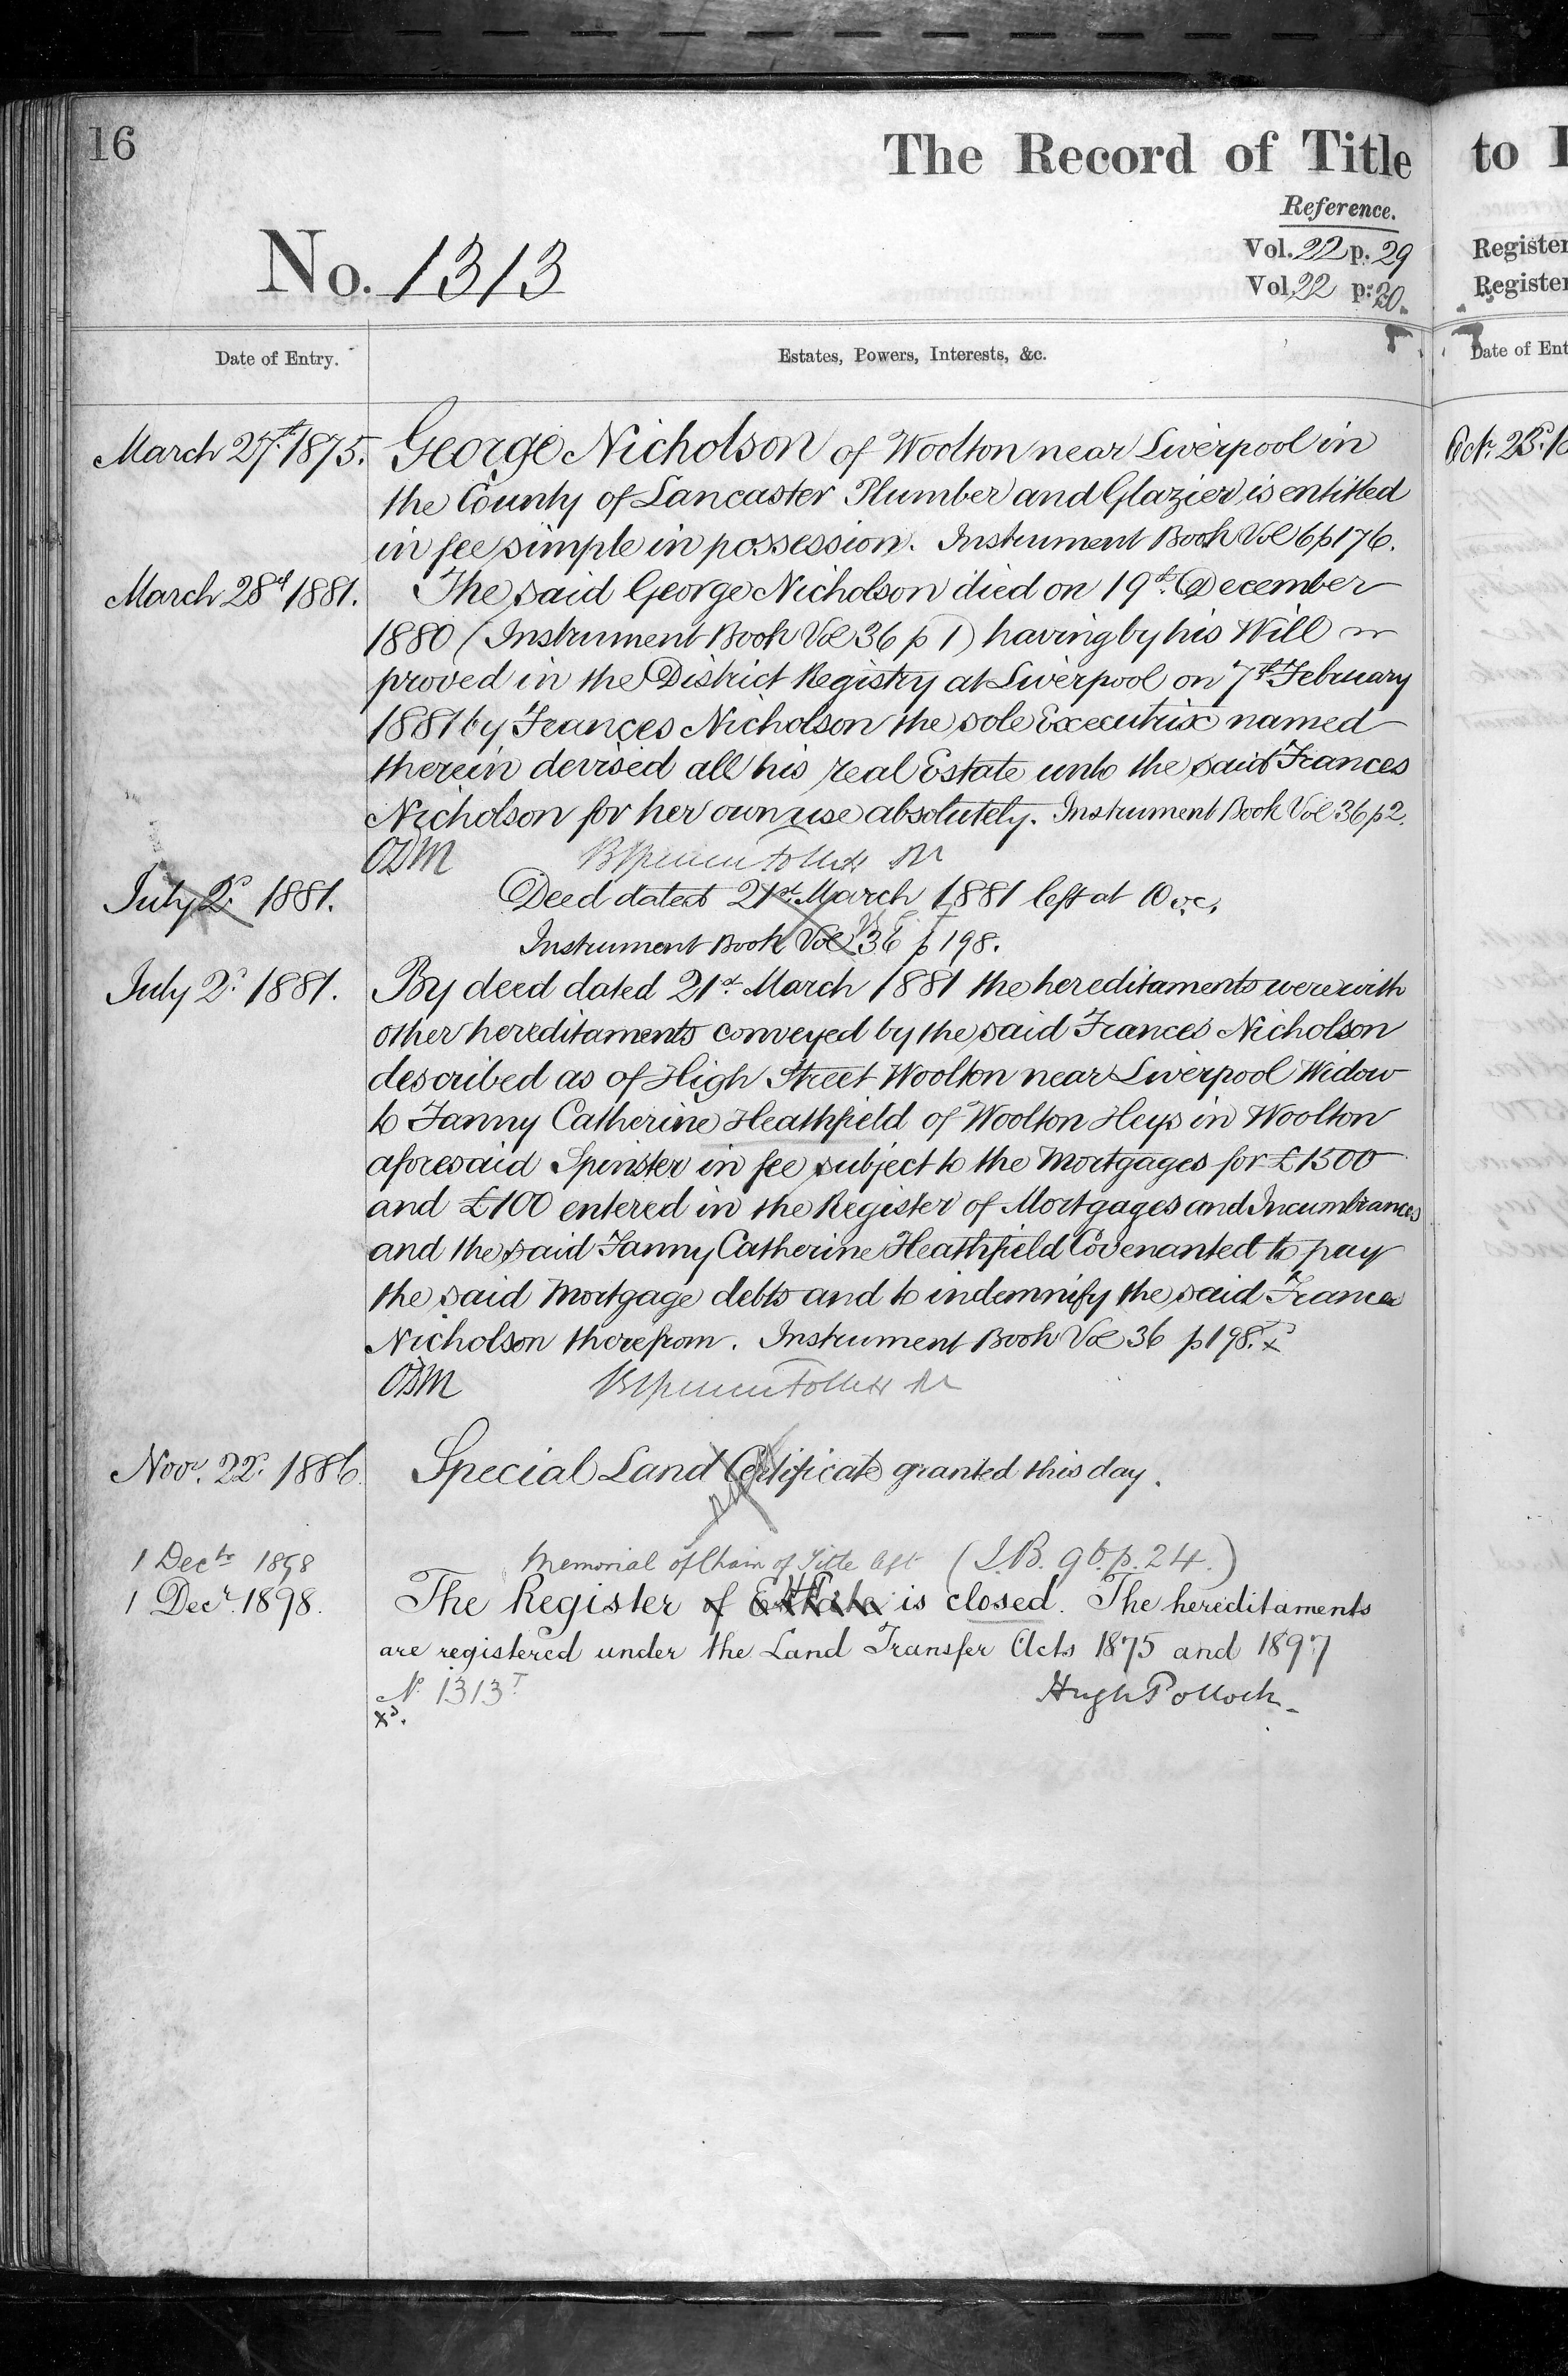 16
The Record of Title
to
Reference.
No. 1313
Vol. 22 p. 29
Register
Vol 22 p: 30.
Register
Date of Entry.
Estates, Powers, Interests, &c.
Date of Ent
March 27th 1875. George Nicholson of Woolton near Liverpool in
the County of Lancaster Plumber and Glazier is entitled
in fee simple in possession. Instrument Book Vol 6 p 176.
March 28th 1881. The said George Nicholson died on 19th December
1880 (Instrument Book Vol 36 p 1) having by his Will
proved in the District Registry at Liverpool on 7th February
1881 by Frances Nicholson the sole Executrix named
therein devised all his real Estate unto the said Frances
Nicholson for her own use absolutely. Instrument Book Vol 36 p 2.
ODM
July 2d 1881. Deed dated 21st March 1881 left at
Instrument Book Vol 36 p 198.
July 2d 1881. By deed dated 21st March 1881 the hereditaments were with
other hereditaments conveyed by the said Frances Nicholson
described as of High Street Woolton near Liverpool Widow
to Fanny Catherine Heathfield of Woolton Heys in Woolton
aforesaid Spinster in fee subject to the Mortgages for £1500
and £100 entered in the Register of Mortgages and Incumbrances
and the said Fanny Catherine Heathfield Covenanted to pay
the said Mortgage debts and to indemnify the said Frances
Nicholson therefrom. Instrument Book Vol 36 p 198. x
ODM
Nov. 22d. 1886. Special Land Certificate granted this day.
1 Decbr 1898 Memorial of Chain of Title left (I.B. 96. p. 24.)
1 Decr. 1898. The Register of Estate is closed. The hereditaments
are registered under the Land Transfer Acts 1875 and 1897
No 1313T Hugh Pollock